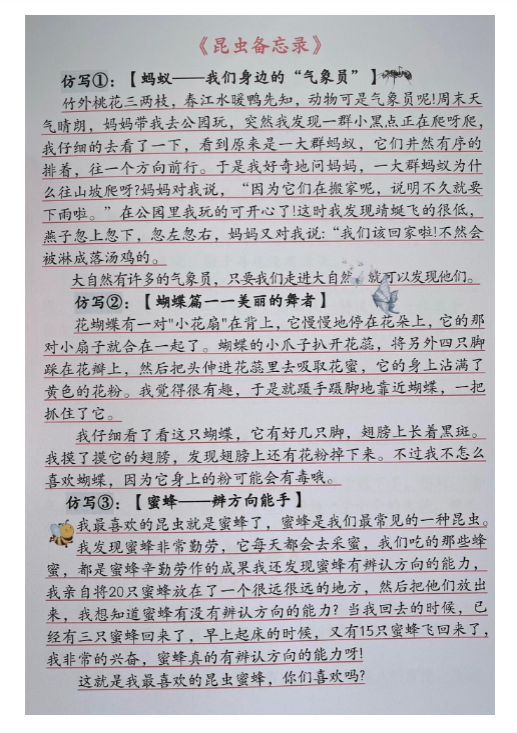 《昆虫备忘录》
仿写①：【蚂蚁——我们身边的“气象员”】
竹外桃花三两枝，春江水暖鸭先知，动物可是气象员呢!周末天
气晴朗，妈妈带我去公园玩，突然我发现一群小黑点正在爬呀爬，
我仔细的去看了一下，看到原来是一大群蚂蚁，它们井然有序的
排着，往一个方向前行。于是我好奇地问妈妈，一大群蚂蚁为什
么往山坡爬呀?妈妈对我说，“因为它们在搬家呢，说明不久就要
下雨啦。”在公园里我玩的可开心了!这时我发现蜻蜓飞的很低，
燕子忽上忽下，忽左忽右，妈妈又对我说:“我们该回家啦!不然会
被淋成落汤鸡的。
大自然有许多的气象员，只要我们走进大自然，就可以发现他们。
仿写②：【蝴蝶篇一一美丽的舞者】
花蝴蝶有一对"小花扇"在背上，它慢慢地停在花朵上，它的那
对小扇子就合在一起了。蝴蝶的小爪子扒开花蕊，将另外四只脚
踩在花瓣上，然后把头伸进花蕊里去吸取花蜜，它的身上沾满了
黄色的花粉。我觉得很有趣，于是就蹑手蹑脚地靠近蝴蝶，一把
抓住了它。
我仔细看了看这只蝴蝶，它有好几只脚，翅膀上长着黑斑。
我摸了摸它的翅膀，发现翅膀上还有花粉掉下来。不过我不怎么
喜欢蝴蝶，因为它身上的粉可能会有毒哦。
仿写③：【蜜蜂——辨方向能手】
我最喜欢的昆虫就是蜜蜂了，蜜蜂是我们最常见的一种昆虫。
我发现蜜蜂非常勤劳，它每天都会去采蜜，我们吃的那些蜂
蜜，都是蜜蜂辛勤劳作的成果我还发现蜜蜂有辨认方向的能力，
我亲自将20只蜜蜂放在了一个很远很远的地方，然后把他们放出
来，我想知道蜜蜂有没有辨认方向的能力？当我回去的时候，已
经有三只蜜蜂回来了，早上起床的时候，又有15只蜜蜂飞回来了，
我非常的兴奋，蜜蜂真的有辨认方向的能力呀!
这就是我最喜欢的昆虫蜜蜂，你们喜欢吗?